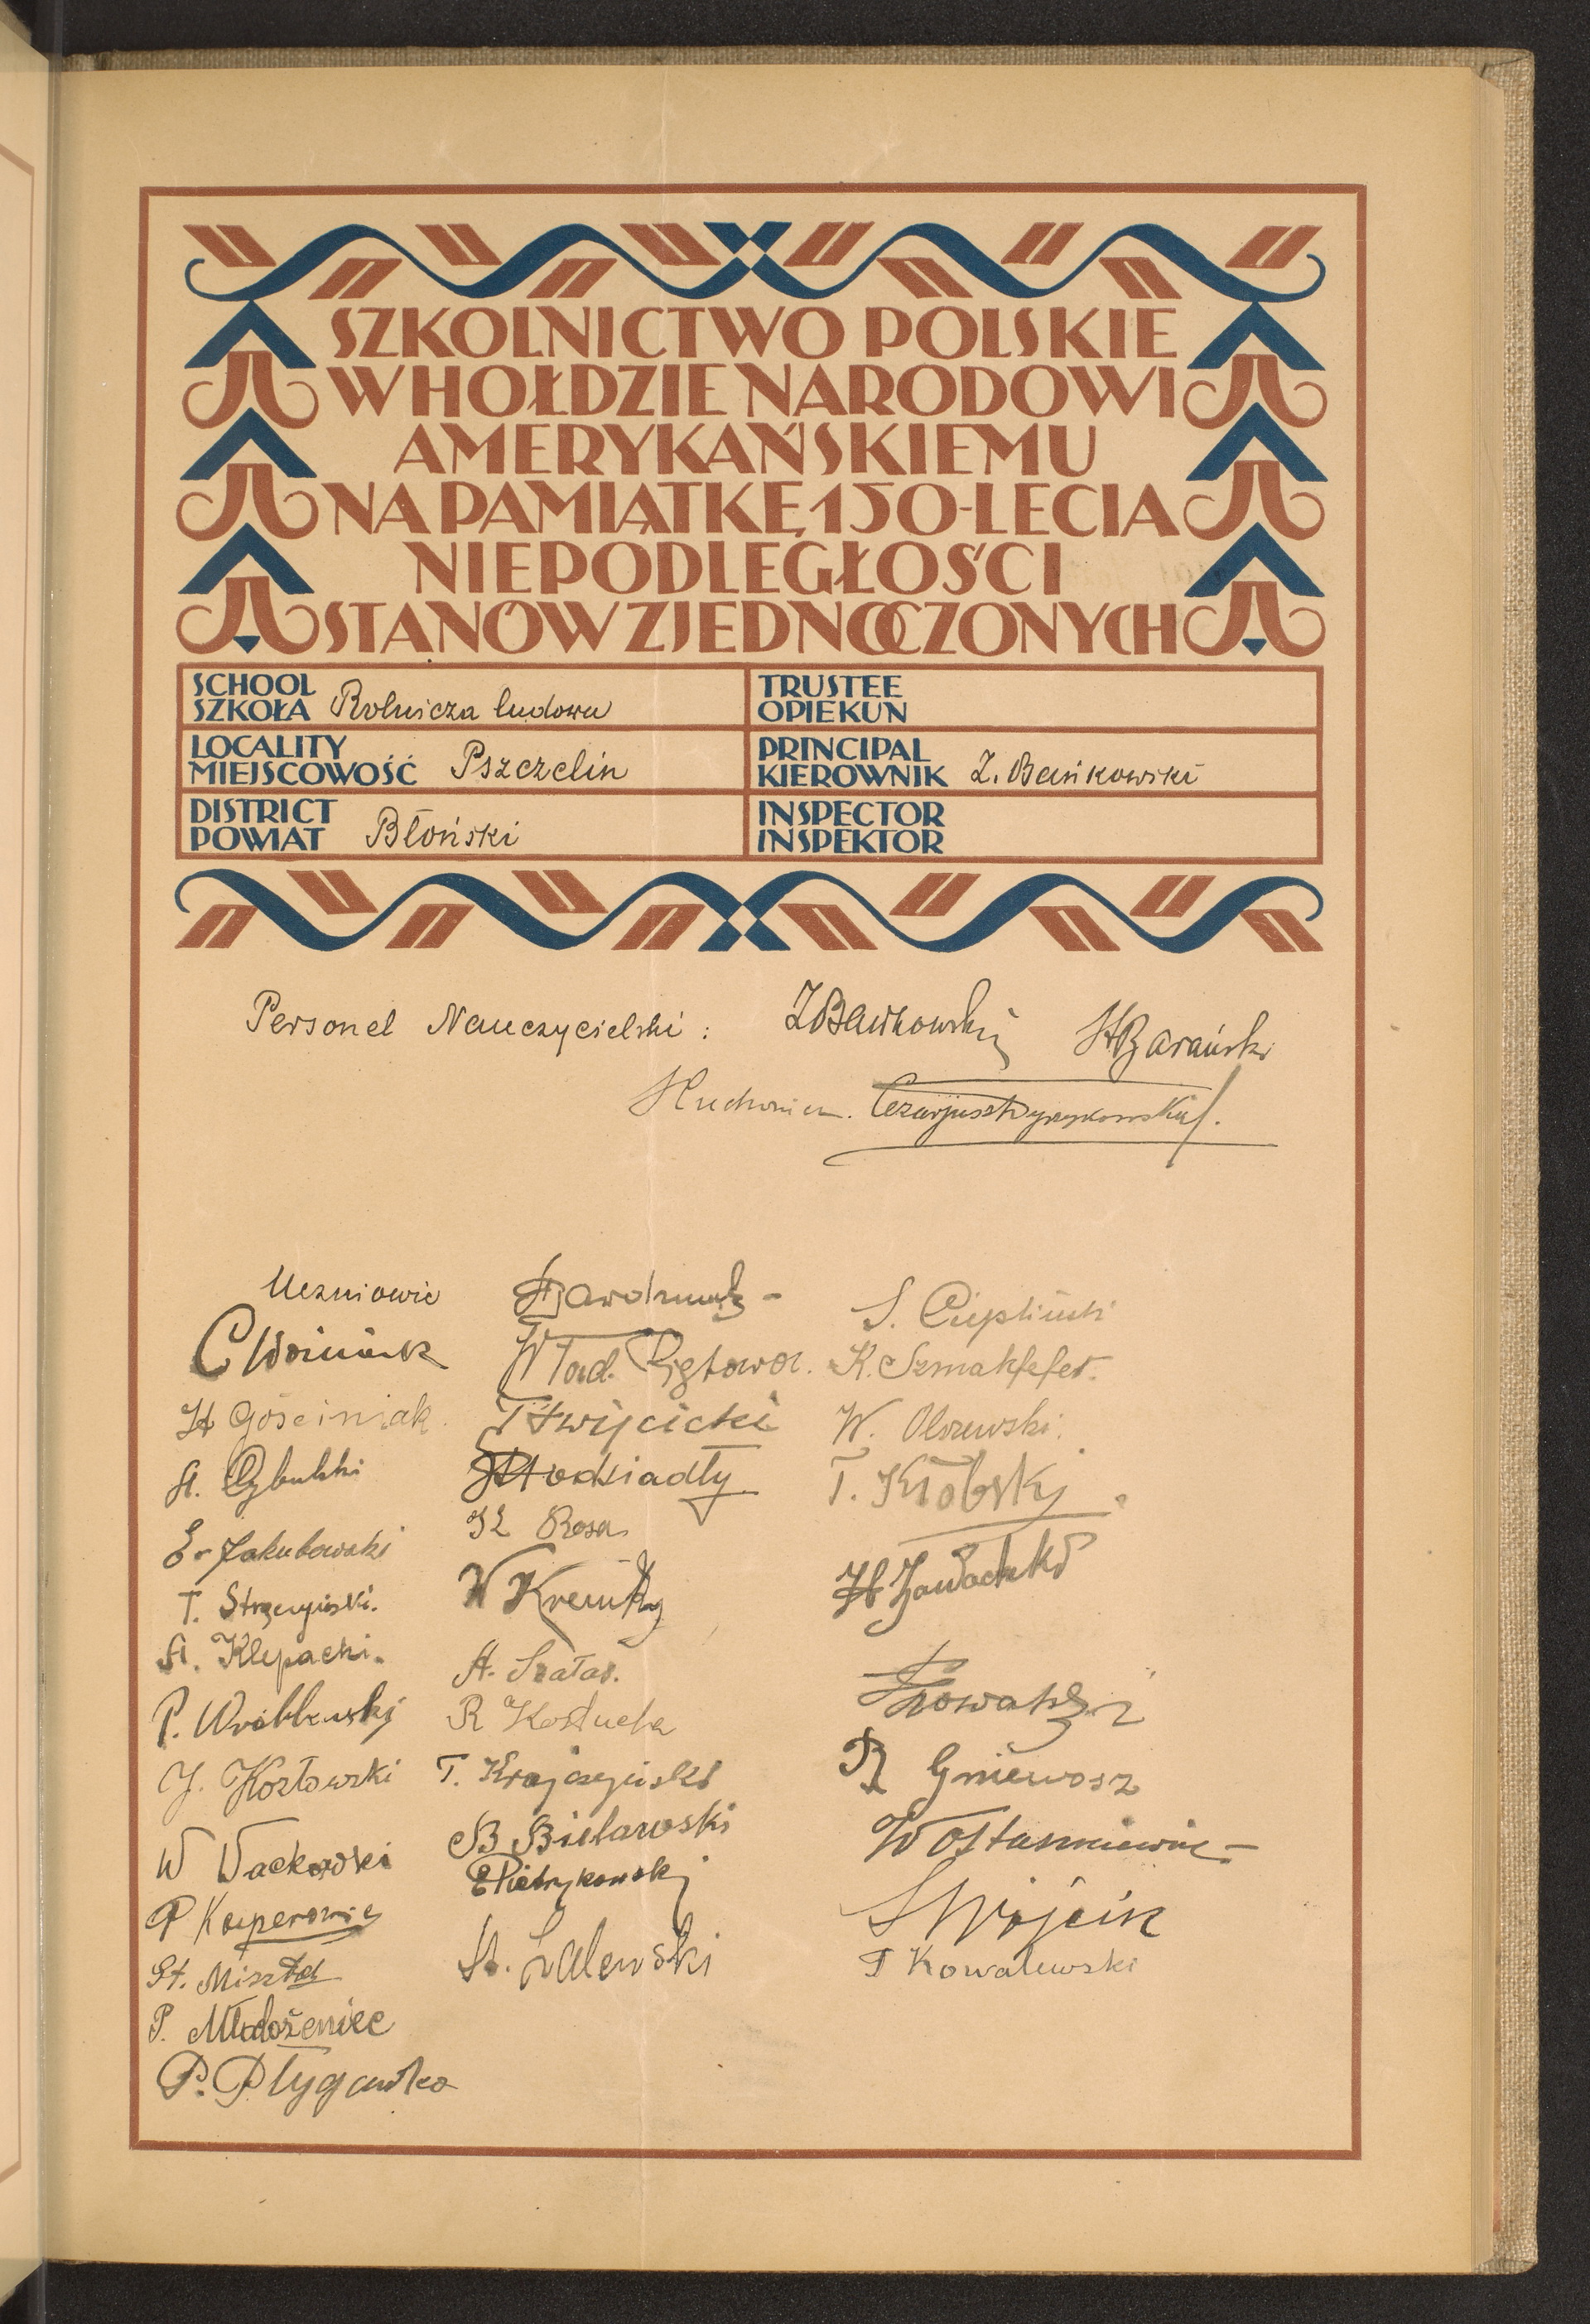 SZKOLNICTWO POLSKIE
W HOŁDZIE NARODOWI
AMERYKAŃSKIEMU
NA PAMIĄTKĘ 150-LECIA
NIEPODLEGŁOŚCI
STANÓW ZJEDNOCZONYCH
SCHOOL
SZKOŁA Rolnicza ludowa
TRUSTEE
OPIEKUN
LOCALITY
MIEJSCOWOŚĆ Pszczelin
PRINCIPAL
KIEROWNIK Z. Bańkowski
DISTRICT
POWIAT Błoński
INSPECTOR
INSPEKTOR
Personel Nauczycielski: ZBańkowski StBarański
Uczniowie
C Woźniak
St Gościniak
A. Cybulski
E. Jakubowski
T. Strzemiński.
A. Klepacki.
P. Wróblewski
J. Kozłowski
W Wackowski
P Kasperowicz
St. Misztal
P. Młodożeniec
P. Pływawko
Wład.
T Święcicki
Podsiadły
Rosa
W Kremky
A. Szałas.
R Kostucha
T. Krajczyński
B Bielawski
E Pietrykowski
St. Zalewski
S. Ciepliński
K.
W. Olszewski.
T. Kłobski
H Zawadzki
Nowacki
R Gniewosz
W Ostaszewicz
S Wójcik
T Kowalewski